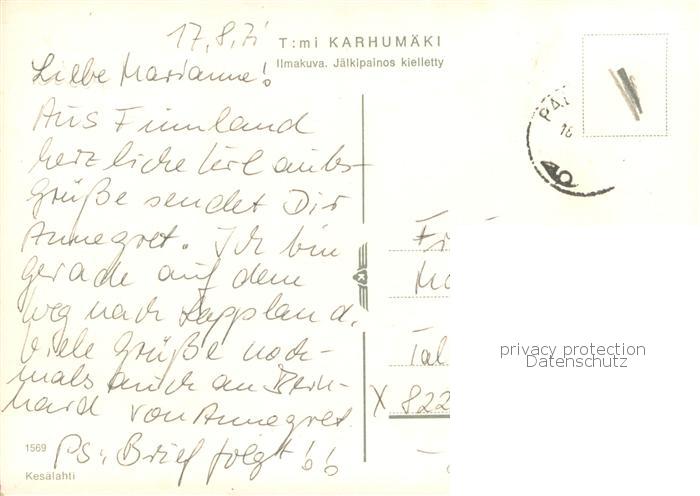 17.8.71
T:mi KARHUMÄKI
Ilmakuva. Jälkipainos kielletty
Liebe Marianne!
Aus Finnland
herzliche Urlaubs-
grüße sendet Dir
Annegret. Ich bin
gerade auf dem
Weg nach Lappland.
Viele Grüße noch-
mals auch an Bern-
hard von Annegret.
Ps: Brief folgt!
1569
Kesälahti
Fr
Tal
X 822
privacy protection
Datenschutz